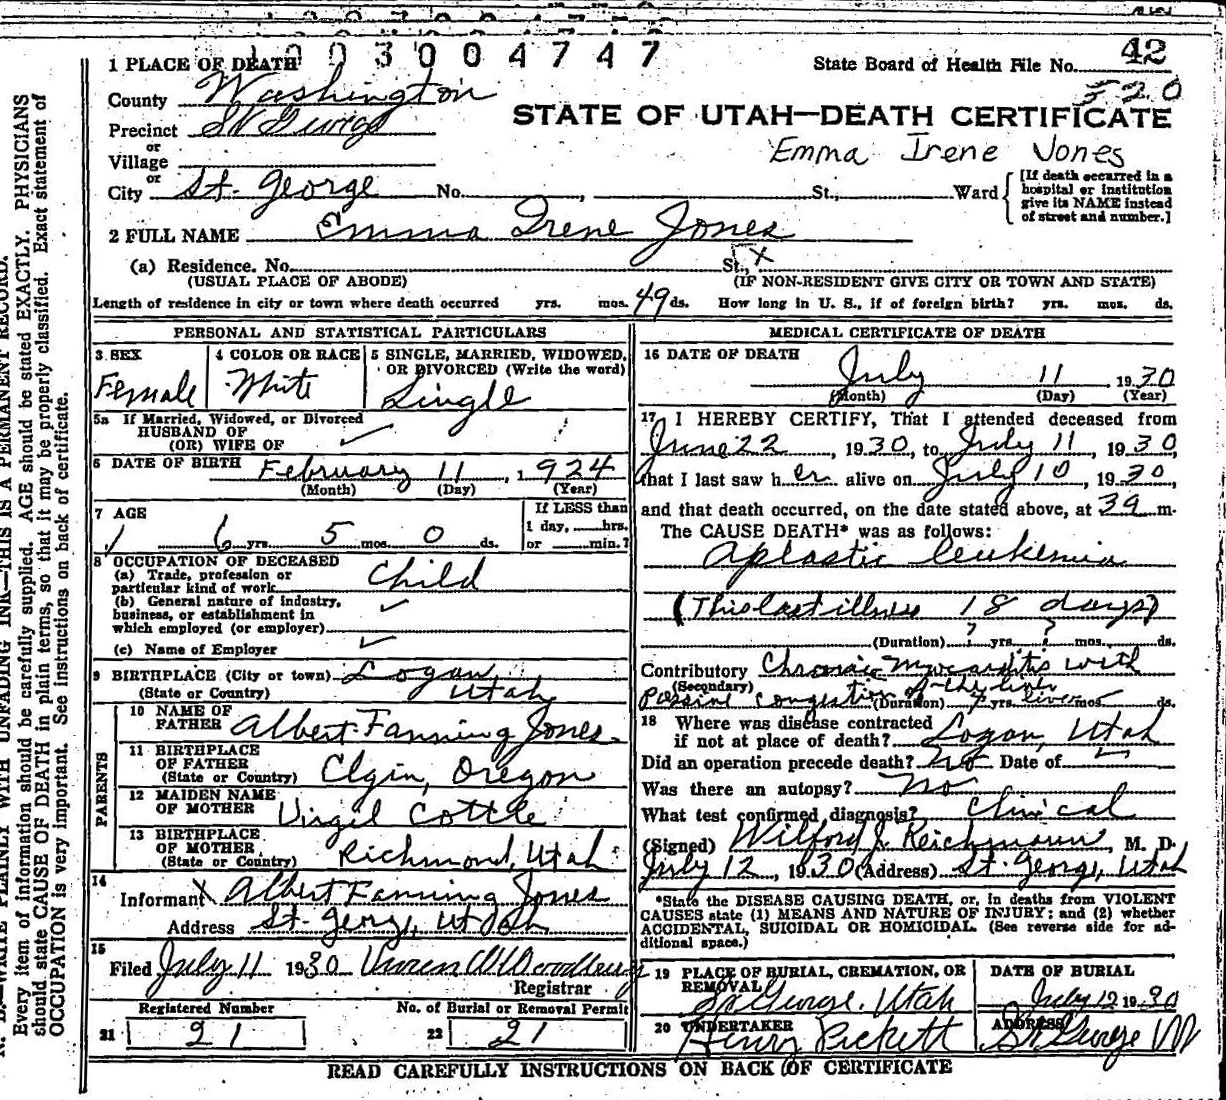 1003004747
1 PLACE OF DEATH
State Board of Health File No. 42
520
County Washington
STATE OF UTAH—DEATH CERTIFICATE
Precinct St George
or
Emma Irene Jones
Village
or
City St. George No. , St., Ward
[If death occurred in a
hospital or institution
give its NAME instead
of street and number.]
2 FULL NAME Emma Irene Jones
(a) Residence. No. St., X
(USUAL PLACE OF ABODE) (IF NON-RESIDENT GIVE CITY OR TOWN AND STATE)
Length of residence in city or town where death occurred yrs. mos. 49 ds. How long in U. S., if of foreign birth? yrs. mos. ds.
PERSONAL AND STATISTICAL PARTICULARS
3 SEX
Female
4 COLOR OR RACE
White
5 SINGLE, MARRIED, WIDOWED,
OR DIVORCED (Write the word)
Single
5a If Married, Widowed, or Divorced
HUSBAND OF
(OR) WIFE OF
6 DATE OF BIRTH February 11, 1924
(Month) (Day) (Year)
7 AGE
6 yrs. 5 mos. 0 ds.
If LESS than
1 day, hrs.
or min.?
8 OCCUPATION OF DECEASED
(a) Trade, profession or
particular kind of work Child
(b) General nature of industry,
business, or establishment in
which employed (or employer)
(c) Name of Employer
9 BIRTHPLACE (City or town) Logan,
(State or Country) Utah
PARENTS
10 NAME OF
FATHER Albert Fanning Jones.
11 BIRTHPLACE
OF FATHER
(State or Country) Elgin, Oregon
12 MAIDEN NAME
OF MOTHER Virgil Cottle
13 BIRTHPLACE
OF MOTHER
(State or Country) Richmond, Utah
14
Informant X Albert Fanning Jones
Address St. George, Utah
15
Filed July 11 1930 Woodbury
Registrar
Registered Number
21 21
No. of Burial or Removal Permit
22 21
MEDICAL CERTIFICATE OF DEATH
16 DATE OF DEATH
July 11 1930
(Month) (Day) (Year)
17 I HEREBY CERTIFY, That I attended deceased from
June 22, 1930, to July 11, 1930,
that I last saw her alive on July 10, 1930,
and that death occurred, on the date stated above, at m.
The CAUSE DEATH* was as follows:
Aplastic leukemia
(This last illness 18 days)
(Duration) ? yrs. ? mos. ds.
Contributory Chronic Myocarditis with
(Secondary)
Passive congestion of the
(Duration) ? yrs. liver mos. ds.
18 Where was disease contracted
if not at place of death? Logan, Utah
Did an operation precede death? No Date of
Was there an autopsy? No
What test confirmed diagnosis? Clinical
(Signed) Wilford J. Reichmann, M. D.
July 12, 1930 (Address) St. George, Utah
*State the DISEASE CAUSING DEATH, or, in deaths from VIOLENT
CAUSES state (1) MEANS AND NATURE OF INJURY; and (2) whether
ACCIDENTAL, SUICIDAL OR HOMICIDAL. (See reverse side for ad-
ditional space.)
19 PLACE OF BURIAL, CREMATION, OR
REMOVAL
St George. Utah
DATE OF BURIAL
July 12 1930
20 UNDERTAKER
Henry Pickett
ADDRESS
St George Ut
READ CAREFULLY INSTRUCTIONS ON BACK OF CERTIFICATE
WRITE PLAINLY WITH UNFADING INK—THIS IS A PERMANENT RECORD.
Every item of information should be carefully supplied. AGE should be stated EXACTLY. PHYSICIANS
should state CAUSE OF DEATH in plain terms, so that it may be properly classified. Exact statement of
OCCUPATION is very important. See instructions on back of certificate.